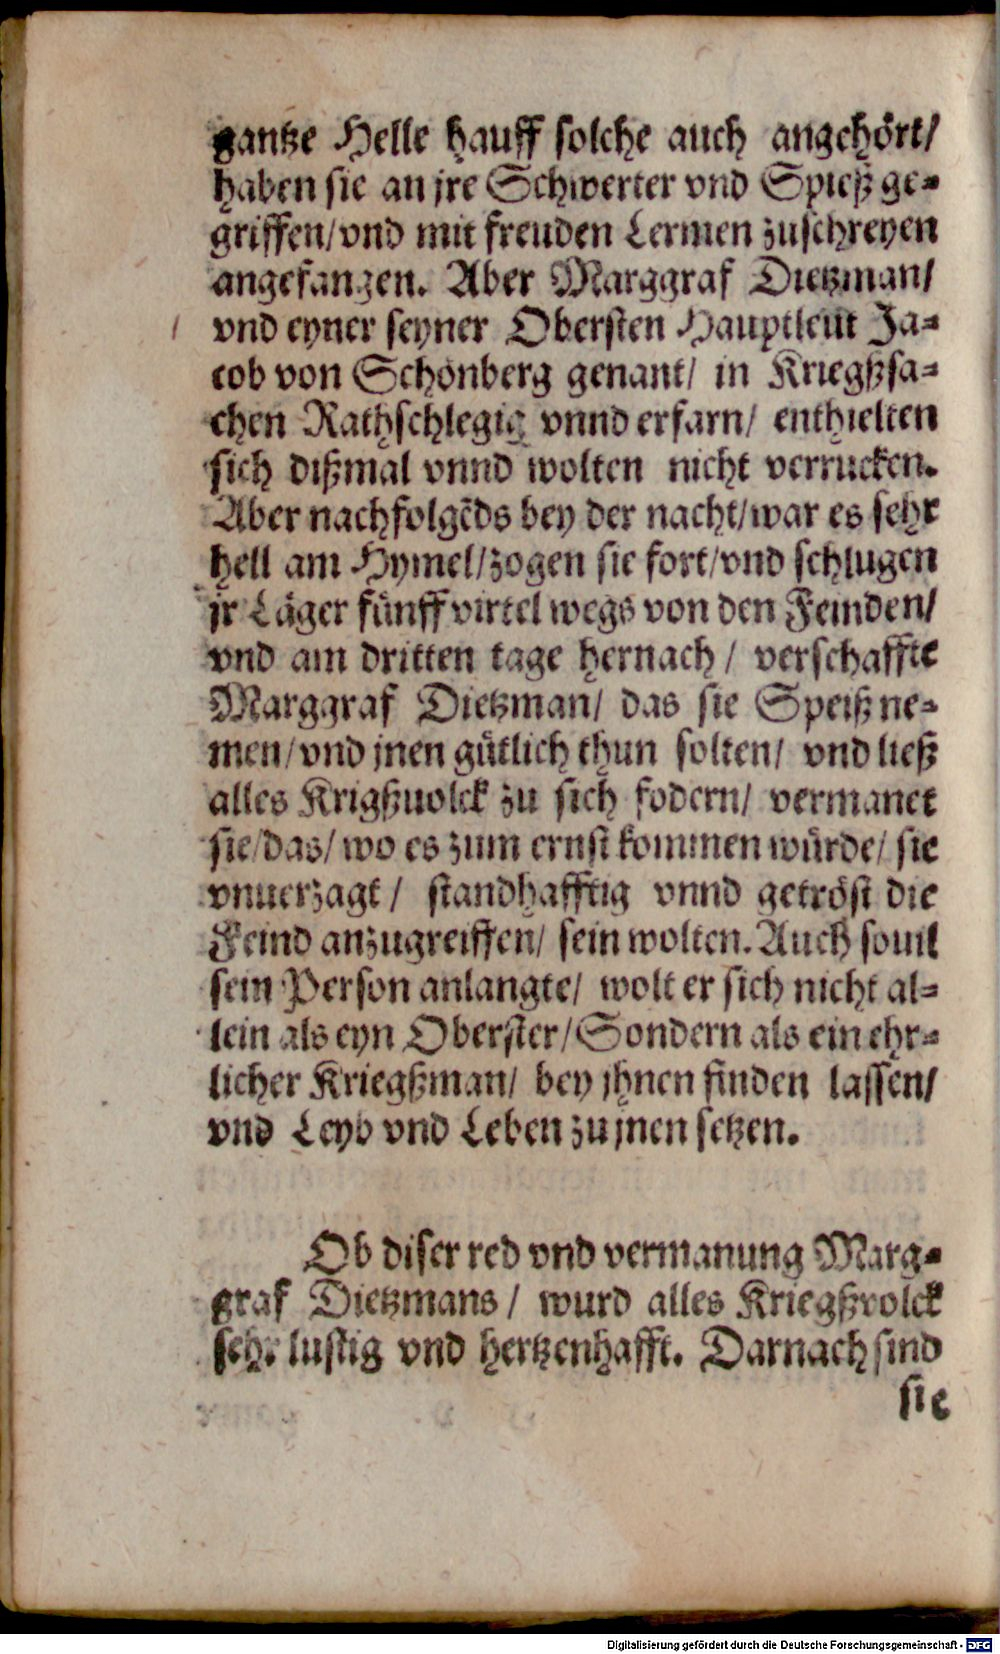 gantze Helle hauff solche auch angehört/
haben sie an jre Schwerter vnd Spieß ge-
griffen/vnd mit freuden Lermen zuschreyen
angefangen. Aber Marggraf Dietzman/
vnd eyner seyner Obersten Hauptleut Ja-
cob von Schönberg genant/ in Kriegßsa-
chen Rathschlegig vnnd erfarn/ enthielten
sich dißmal vnnd wolten nicht verrucken.
Aber nachfolgēds bey der nacht/war es sehr
hell am Hymel/zogen sie fort/vnd schlugen
jr Läger fünff virtel wegs von den Feinden/
vnd am dritten tage hernach/ verschaffte
Marggraf Dietzman/ das sie Speiß ne-
men/vnd jnen gütlich thun solten/ vnd ließ
alles Krigßuolck zu sich fodern/ vermanet
sie/das/wo es zum ernst kommen würde/ sie
vnuerzagt/ standhafftig vnnd getröst die
Feind anzugreiffen/ sein wolten. Auch souil
sein Person anlangte/ wolt er sich nicht al-
lein als eyn Oberster/Sondern als ein ehr-
licher Kriegßman/ bey jhnen finden lassen/
vnd Leyb vnd Leben zu jnen setzen.
Ob diser red vnd vermanung Marg-
graf Dietzmans/ wurd alles Kriegßvolck
sehr lustig vnd hertzenhafft. Darnach sind
sie
Digitalisierung gefördert durch die Deutsche Forschungsgemeinschaft - DFG